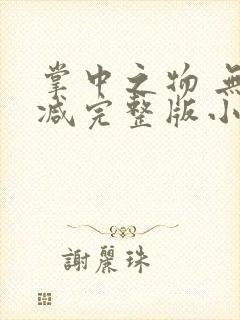 掌中之物 無
减完整版小
謝麗珠